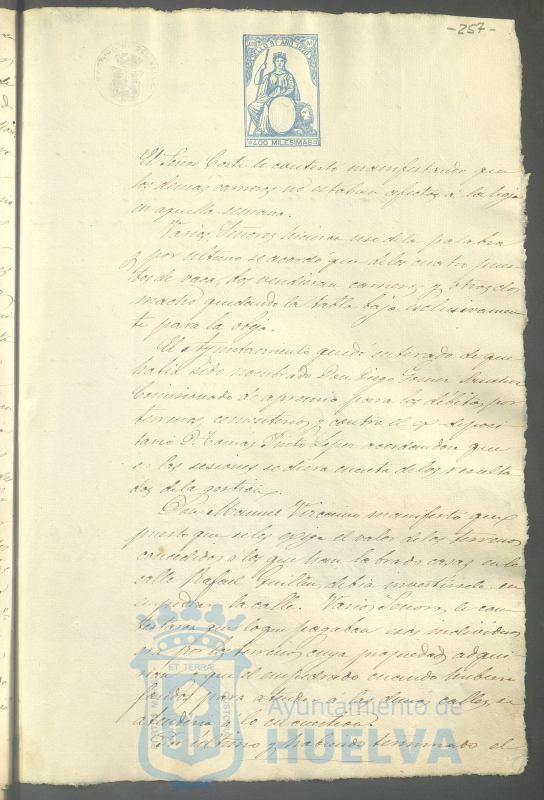 -257-
SELLO 9º AÑO 1870
400 MILESIMAS
El Señor Corte le contestó manifestando que
los demas carneros no estaban afectos á la baja
en aquella semana.
Varios Señores hicieron uso de la palabra
y por ultimo se acordó que de los cuatro pues
tos de vaca, dos vendieran carneros y otros dos
macho quedando la tabla baja esclusivamen
te para la obeja.
El Ayuntamiento quedó enterado de que
habia sido nombrado Don Diego Gomez
Comisionado de apremio para los débitos por
terrenos, cementerio y contra el ex-deposi
tario D. Tomas Pinto Lopez acordandose que
en las sesiones se diera cuenta de los resulta
dos de la gestion.
Don Manuel Vizcaino manifestó que
puesto que se les exigia el valor de los terrenos
concedidos a los que han labrado casas en la
calle Rafael Guillen, debia invertirsele en
empedrar la calle. Varios Señores le con
testaron que lo que pagaban esos individuos
era por los terrenos cuya propiedad adqui
rian y que el empedrado cuando hubiera
fondos para atender a las demas calles, se
atenderia a lo en cuestion.
Por último y habiendo terminado el
ET TERRA
Ayuntamiento de
HUELVA